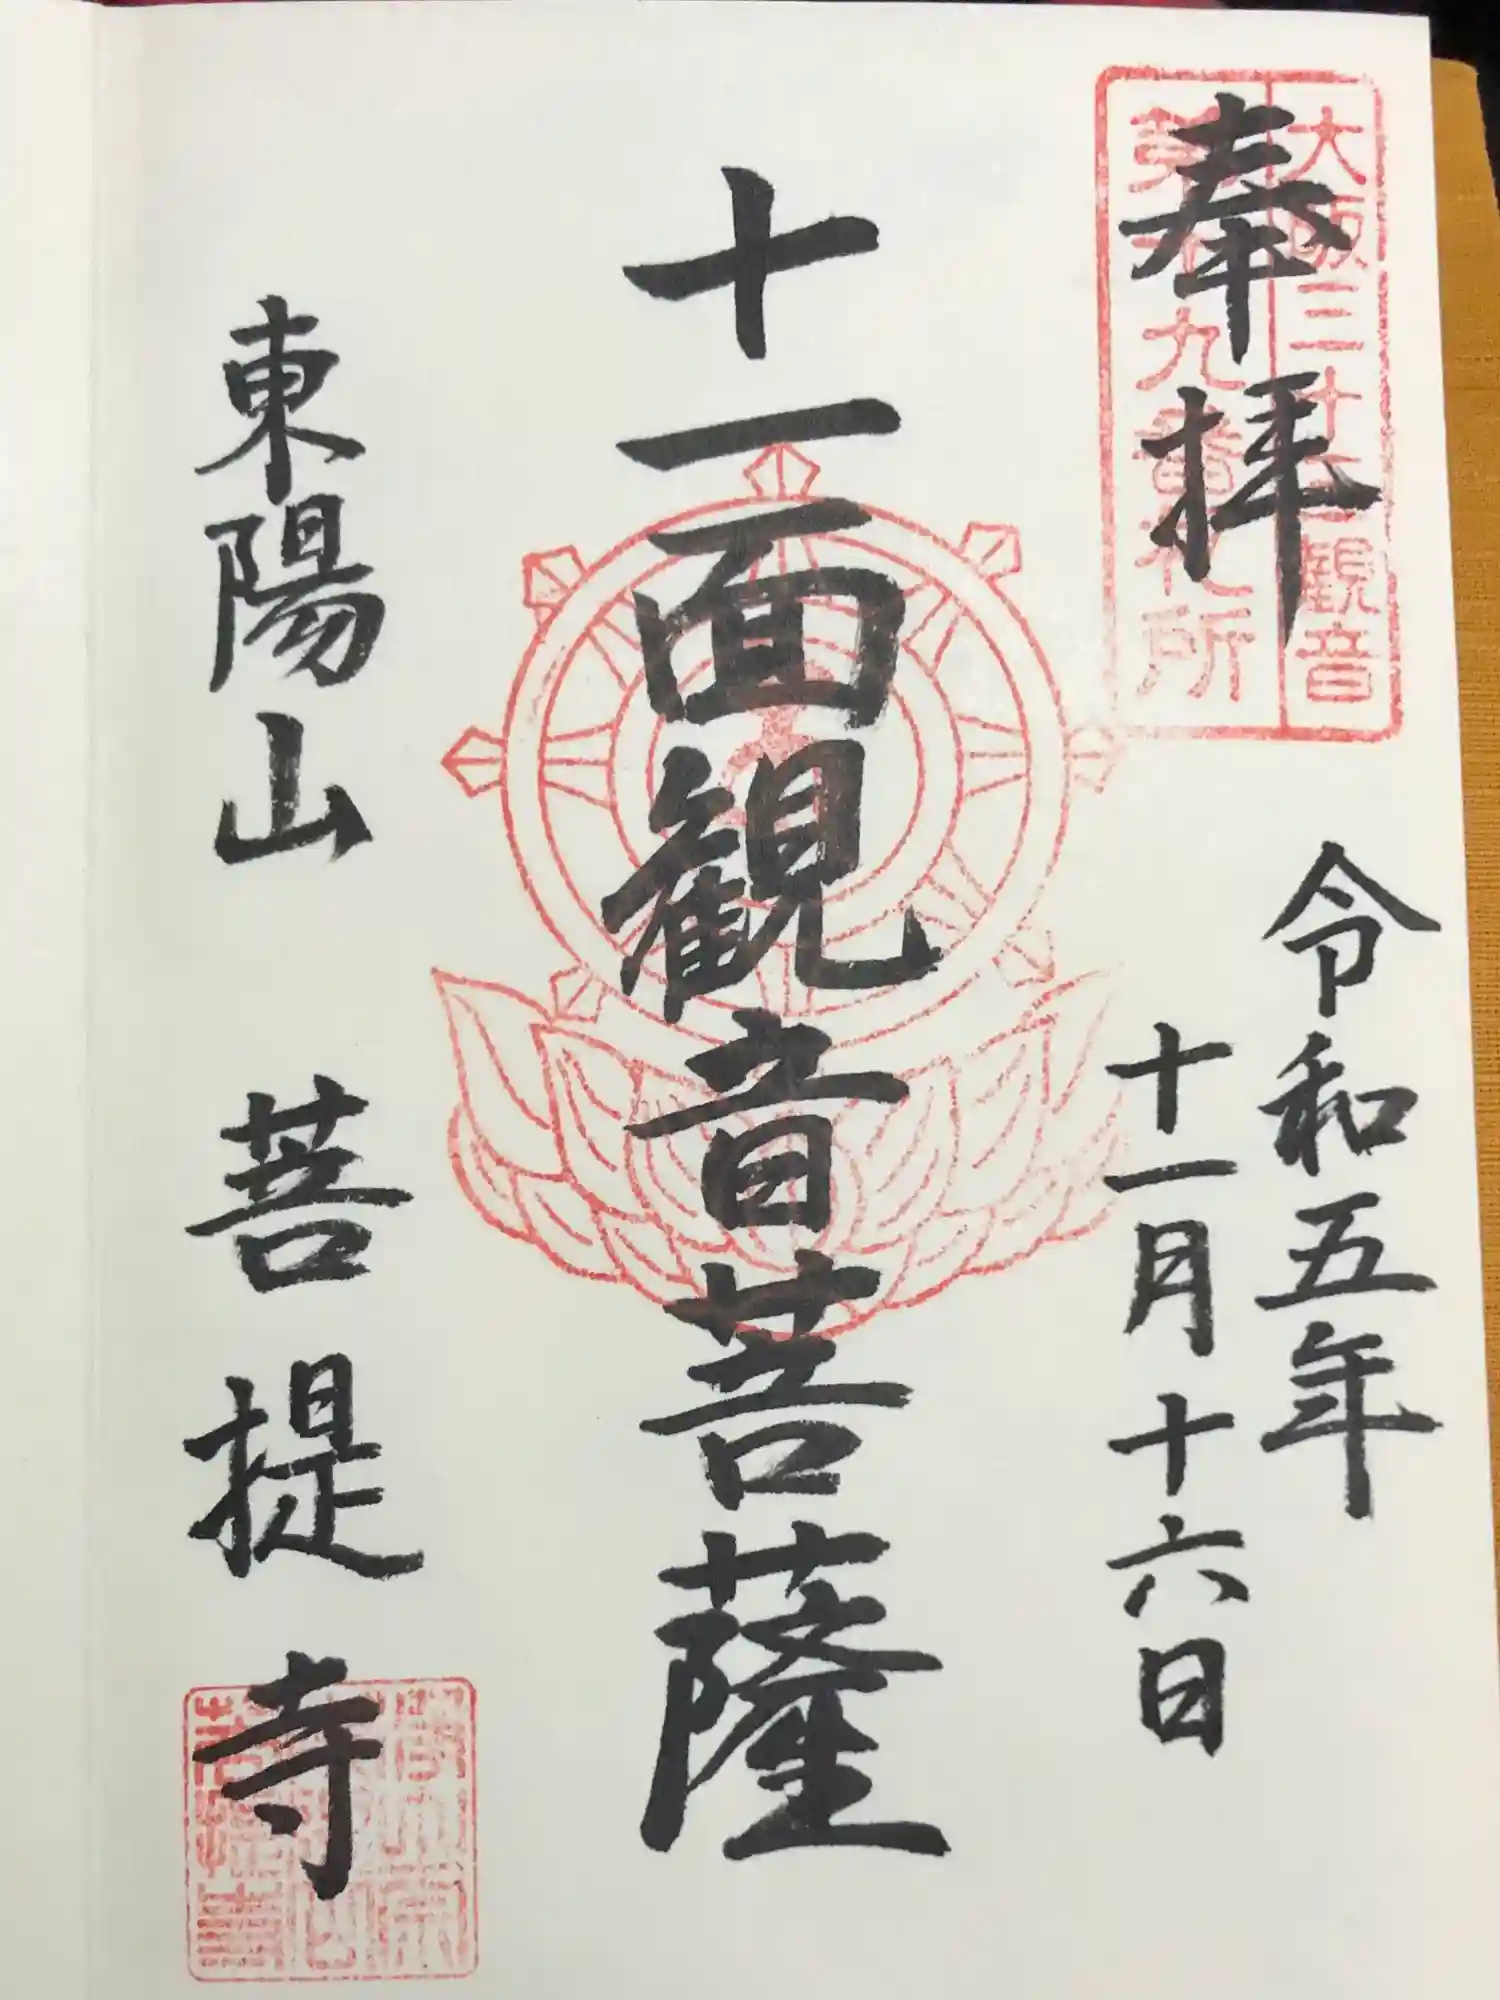 奉拝
大阪三十三観音
第十九番札所
令和五年
十一月十六日
十一面観音菩薩
東陽山 菩提寺